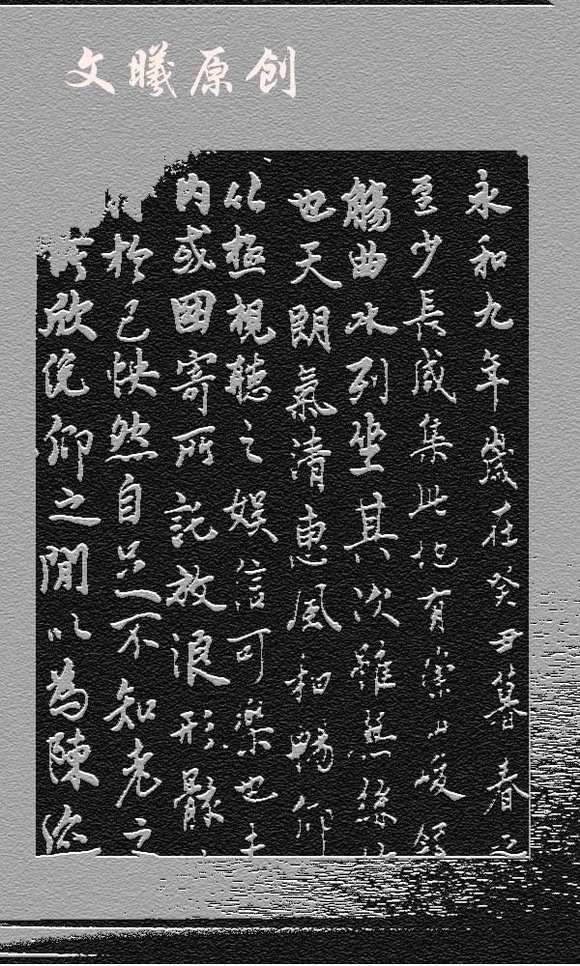 文曦原创
永和九年歲在癸丑暮春之
至少長咸集此地有崇山峻領
觴曲水列坐其次雖無絲竹
也天朗氣清惠風和暢仰
以極視聽之娛信可樂也夫
內或因寄所託放浪形骸
於己怏然自足不知老之
欣俛仰之閒以為陳迹